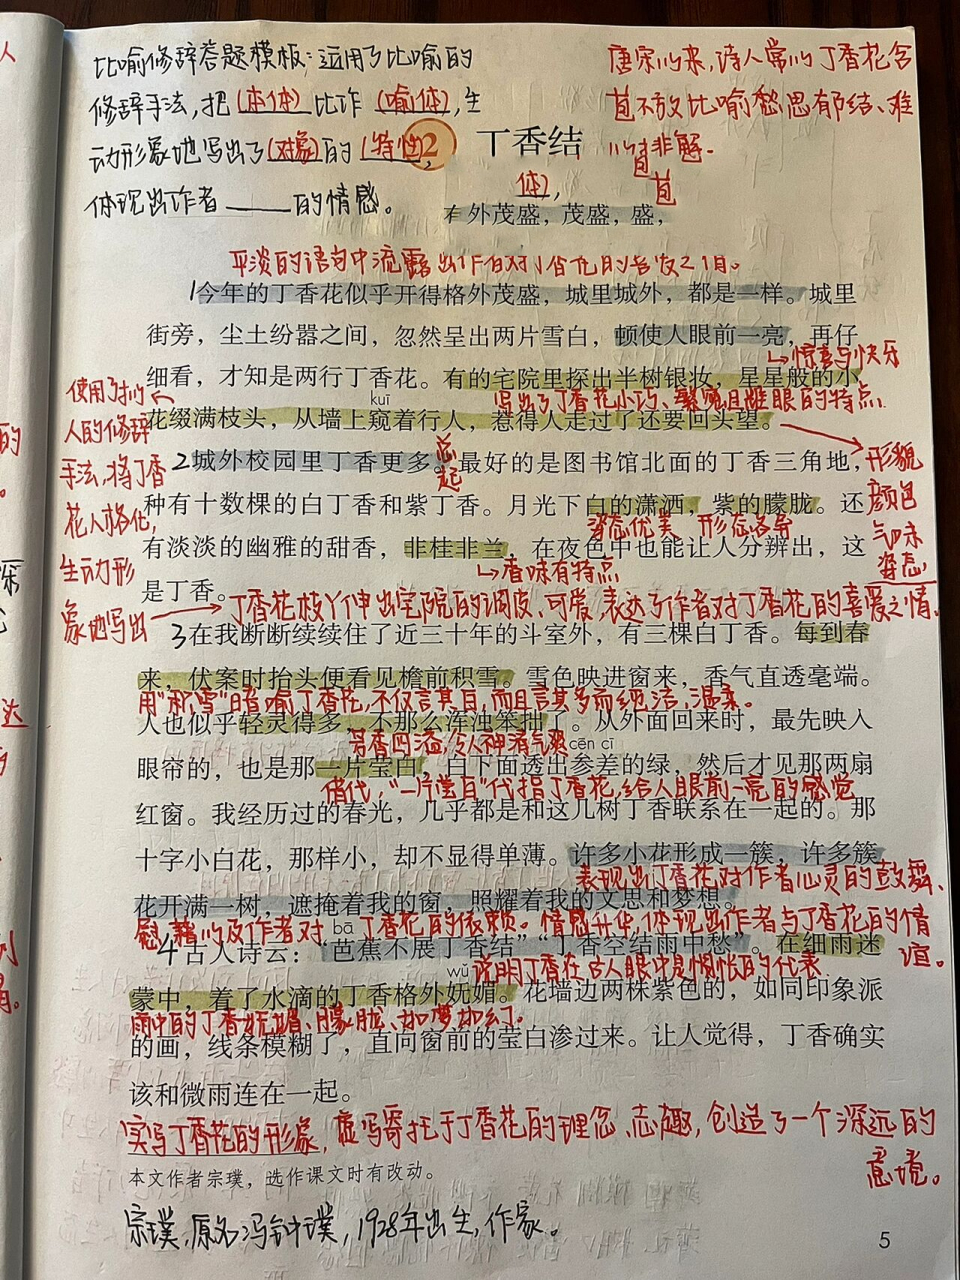 比喻修辞答题模板:运用了比喻的
修辞手法,把(本体)比作(喻体),生
动形象地写出了(对象)的(特性),
体现出作者____的情感。
唐宋以来,诗人常以丁香花含
苞不放比喻愁思郁结、难
以排解。
2 丁香结
外茂盛,茂盛,盛,
平淡的语句中流露出作者对丁香花的喜爱之情。
1今年的丁香花似乎开得格外茂盛,城里城外,都是一样。城里
街旁,尘土纷嚣之间,忽然呈出两片雪白,顿使人眼前一亮,再仔
→惊喜与快乐
细看,才知是两行丁香花。有的宅院里探出半树银妆,星星般的小
写出了丁香花小巧、繁多且惹眼的特点
kuī
花缀满枝头,从墙上窥着行人,惹得人走过了还要回头望。
使用了拟
人的修辞
手法,将丁香
花人格化,
生动形
象地写出
→丁香花枝丫伸出宅院的调皮、可爱,表达了作者对丁香花的喜爱之情。
总
起
2城外校园里丁香更多。最好的是图书馆北面的丁香三角地,
形貌
颜色
气味
姿态
种有十数棵的白丁香和紫丁香。月光下白的潇洒,紫的朦胧。还
姿态优美 形态各异
有淡淡的幽雅的甜香,非桂非兰,在夜色中也能让人分辨出,这
→香味有特点
是丁香。
3在我断断续续住了近三十年的斗室外,有三棵白丁香。每到春
来,伏案时抬头便看见檐前积雪。雪色映进窗来,香气直透毫端。
用“积雪”暗喻丁香花,不仅言其白,而且言其多而纯洁,温柔。
人也似乎轻灵得多,不那么浑浊笨拙了。从外面回来时,最先映入
芳香四溢,令人神清气爽
cēn cī
眼帘的,也是那一片莹白,白下面透出参差的绿,然后才见那两扇
借代,“一片莹白”代指丁香花,给人眼前一亮的感觉
红窗。我经历过的春光,几乎都是和这几树丁香联系在一起的。那
十字小白花,那样小,却不显得单薄。许多小花形成一簇,许多簇
表现出丁香花对作者心灵的鼓舞、
花开满一树,遮掩着我的窗,照耀着我的文思和梦想。
慰藉以及作者对丁香花的依赖。情感升华,体现出作者与丁香花的情
谊。
bā
4古人诗云:“芭蕉不展丁香结”“丁香空结雨中愁”。在细雨迷
说明丁香在古人眼中是惆怅的代表
wǔ
蒙中,着了水滴的丁香格外妩媚。花墙边两株紫色的,如同印象派
雨中的丁香妩媚、朦胧、如梦如幻。
的画,线条模糊了,直向窗前的莹白渗过来。让人觉得,丁香确实
该和微雨连在一起。
实写丁香花的形象,虚写寄托于丁香花的理念、志趣,创造了一个深远的
意境。
本文作者宗璞,选作课文时有改动。
宗璞,原名冯钟璞,1928年出生,作家。
5